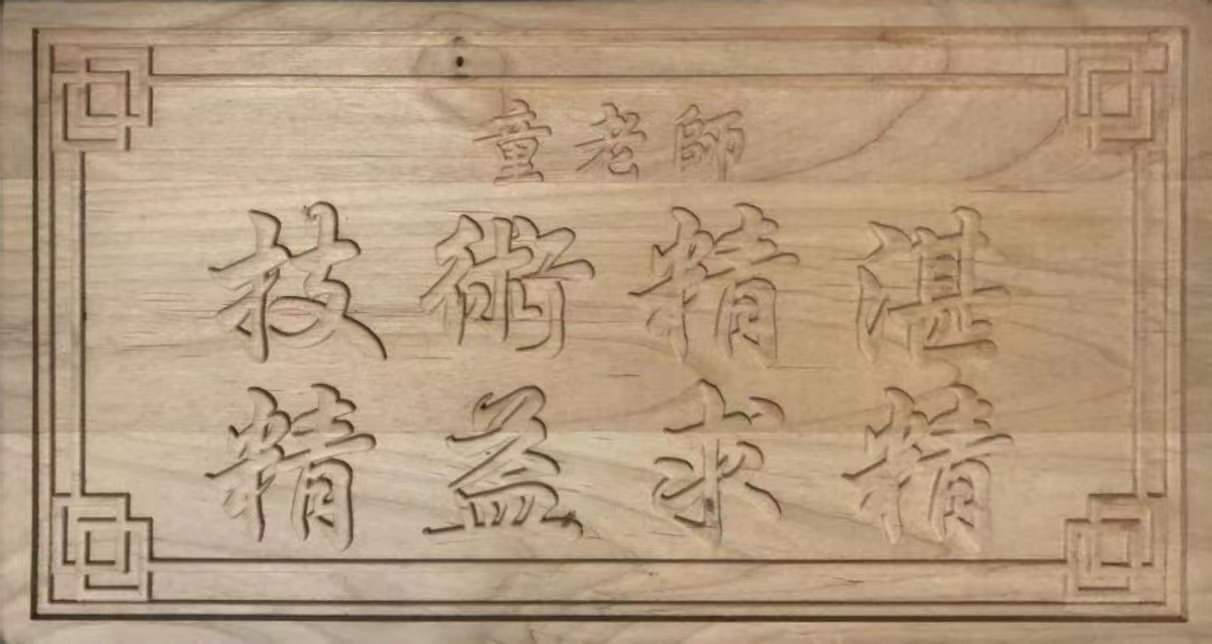 童老師
技術精湛
精益求精